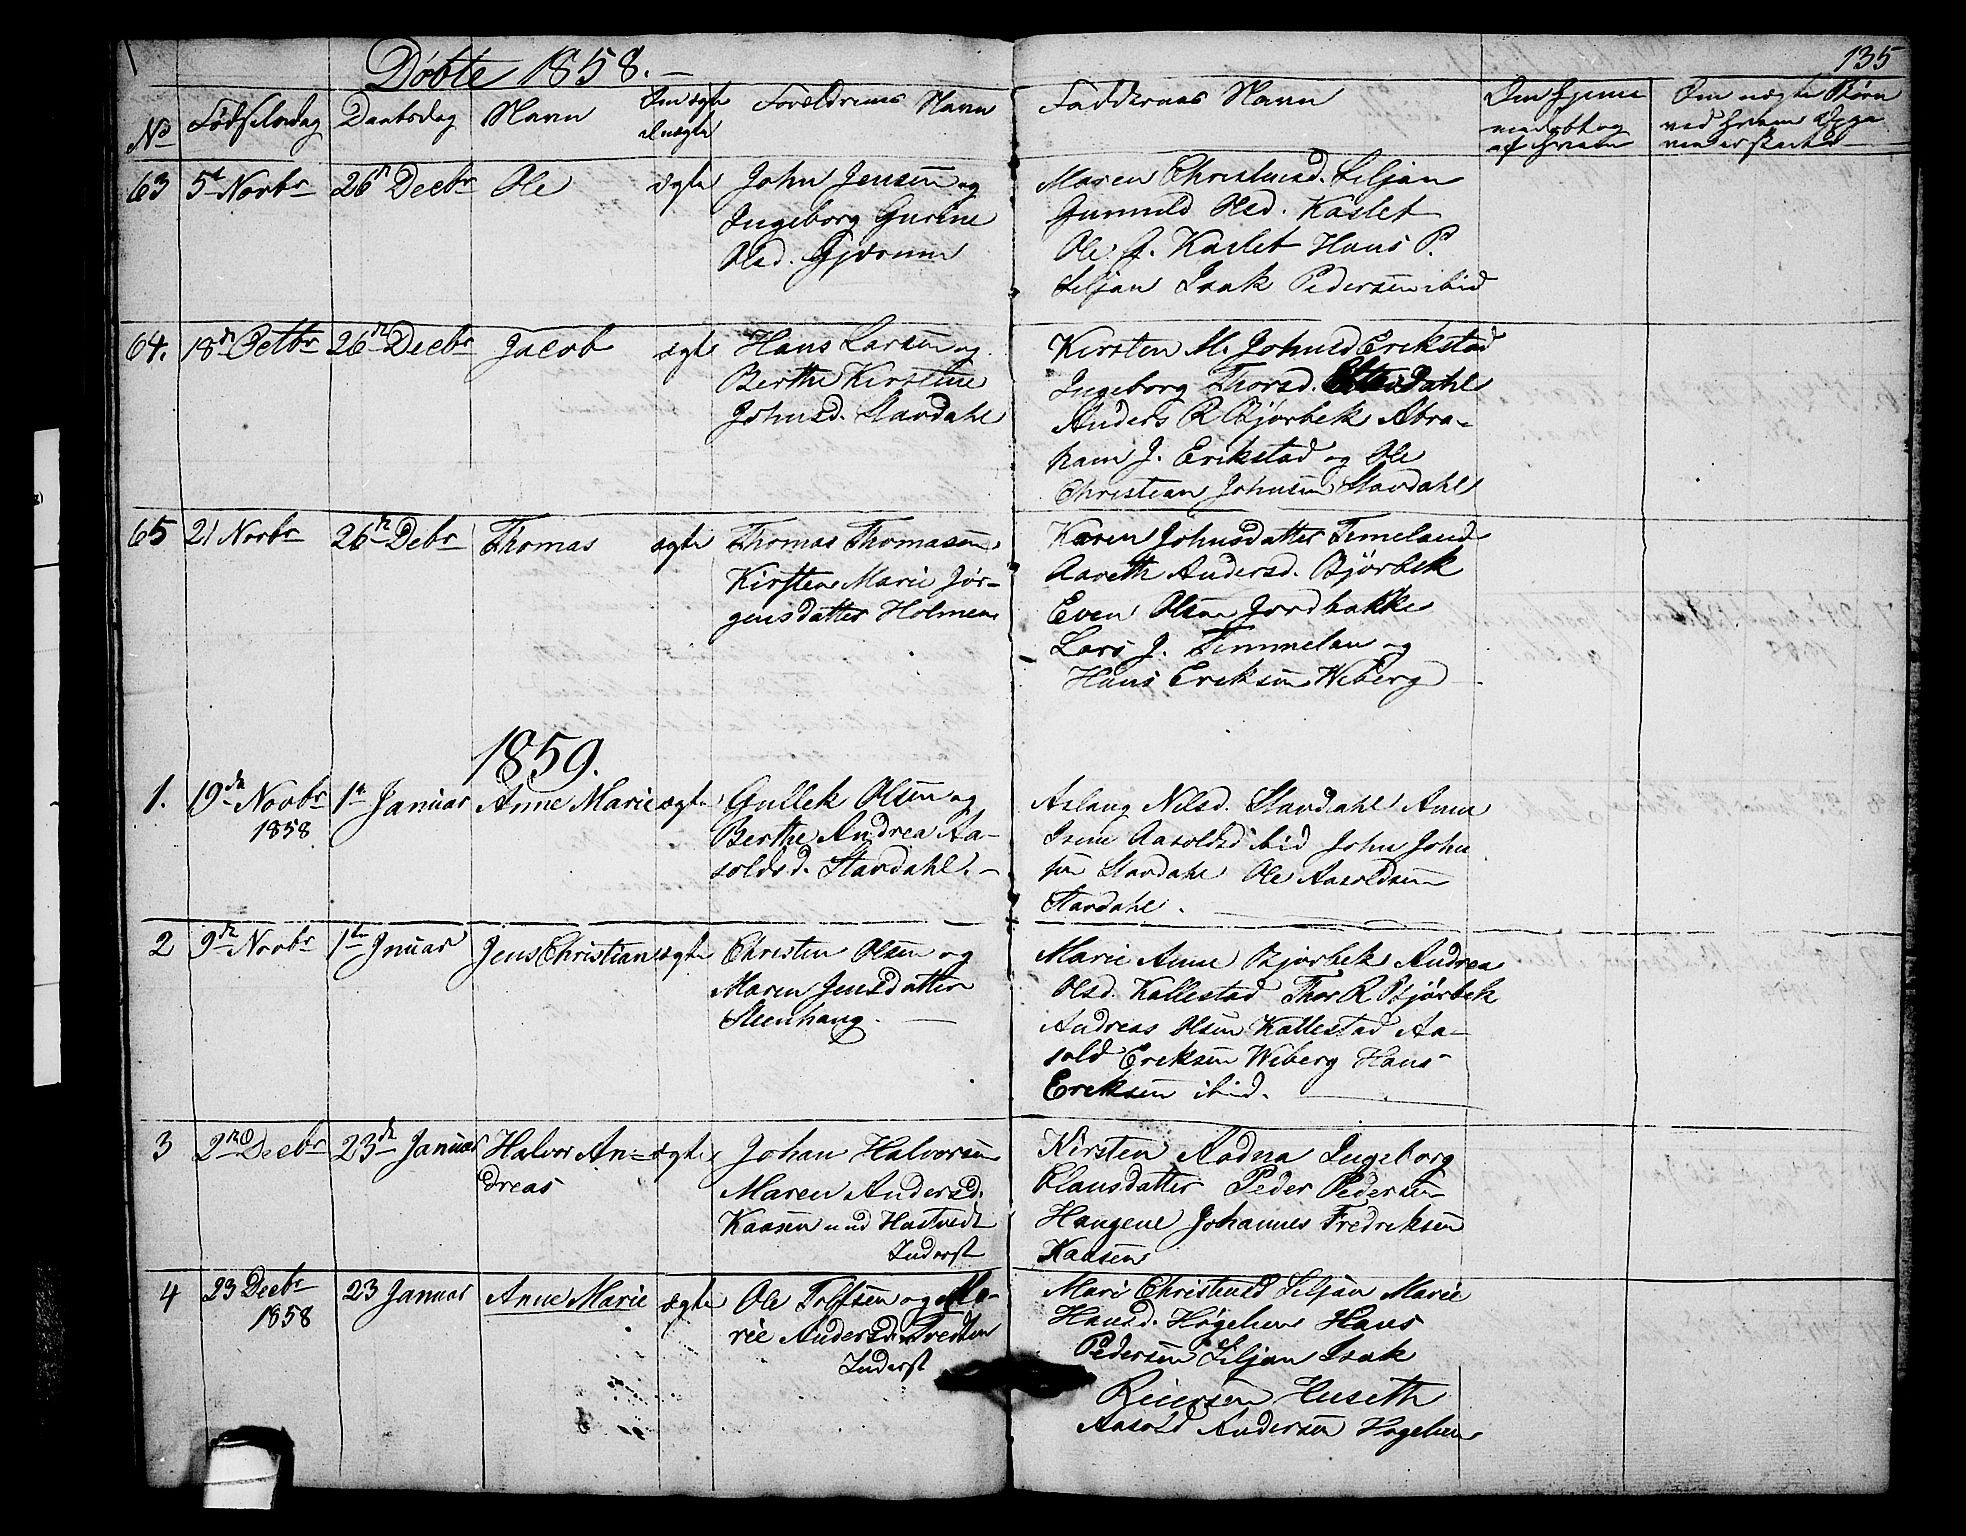 Døbte 1858.
135
No
Fødselsdag
Daabsdag
Navn
Om ægte el uægte
Forældrenes Navn
Faddernes Navn
Om hjemmedøbt og af hvem
Om uægte Børn ved hvem
63 5t Novbr 26 Decbr Ole ægte
John Jensen og
Ingeborg Gurine
Olsd. Gjerum
Maren Christensd. Siljan
Gunnild Olsd. Kaslet
Ole A. Kaslet Hans P.
Siljan Isak Pedersen ibid
64. 18de Octbr 26de Decbr Jacob ægte
Hans Larsen og
Berthe Kirstine
Johnsd. Stavdahl
Kirsten M. Johnsd Erikstad
Ingeborg Thorsd. Dahl
Anders R Bjørbek Abra-
ham J. Erikstad og Ole
Christian Johnsen Stavdahl
65 21 Novbr 26de Debr Thomas ægte
Thomas Thomasen
Kirsten Marie Jør-
gensdatter Holmen
Karen Johnsdatter Timeland
Aareth Andersd. Bjørbek
Even Olsen Jordbakke
Lars J. Timmelan og
Hans Eriksen Weberg
1859.
1. 19de Novbr 1t Januar Anne Marie ægte
1858.
Gullek Olsen og
Berthe Andrea Aa-
solds d. Stavdahl. -
Aslaug Nilsd. Stavdahl Anne
Isine Aasoldsd ibid John John
sen Stavdahl Ole Aasoldsen
Stavdahl.
2 9de Novbr 1te Jnuar Jens Christian ægte
Christen Olsen og
Maren Jensdatter
Steenhaug.
Marie Anne Bjørbek Andrea
Olsd. Kallestad Thor R Bjørbek
Andreas Olsen Kallestad Aa-
sold Eriksen Weberg Hans
Eriksen ibid.
3 2de Decbr 23de Januar Halvor An- ægte
dreas
Johan Halvorsen
Maren Andersd.
Kaasen und Hastvedt
Inderst
Kirsten Aadna Ingeborg
Clausdatter Peder Pedersen
Haugene Johannes Fredriksen
Kaasen
4 23 Decbr 23 Januar Anne Marie ægte
1858
Ole Tolfsen og Ma-
rie Andersd.
Inderst
Mari Christensd Siljan Marie
Hansd. Høgelien Hans
Pedersen Siljan Isak
Reiersen Huseth
Aasold Andersen Høgelien